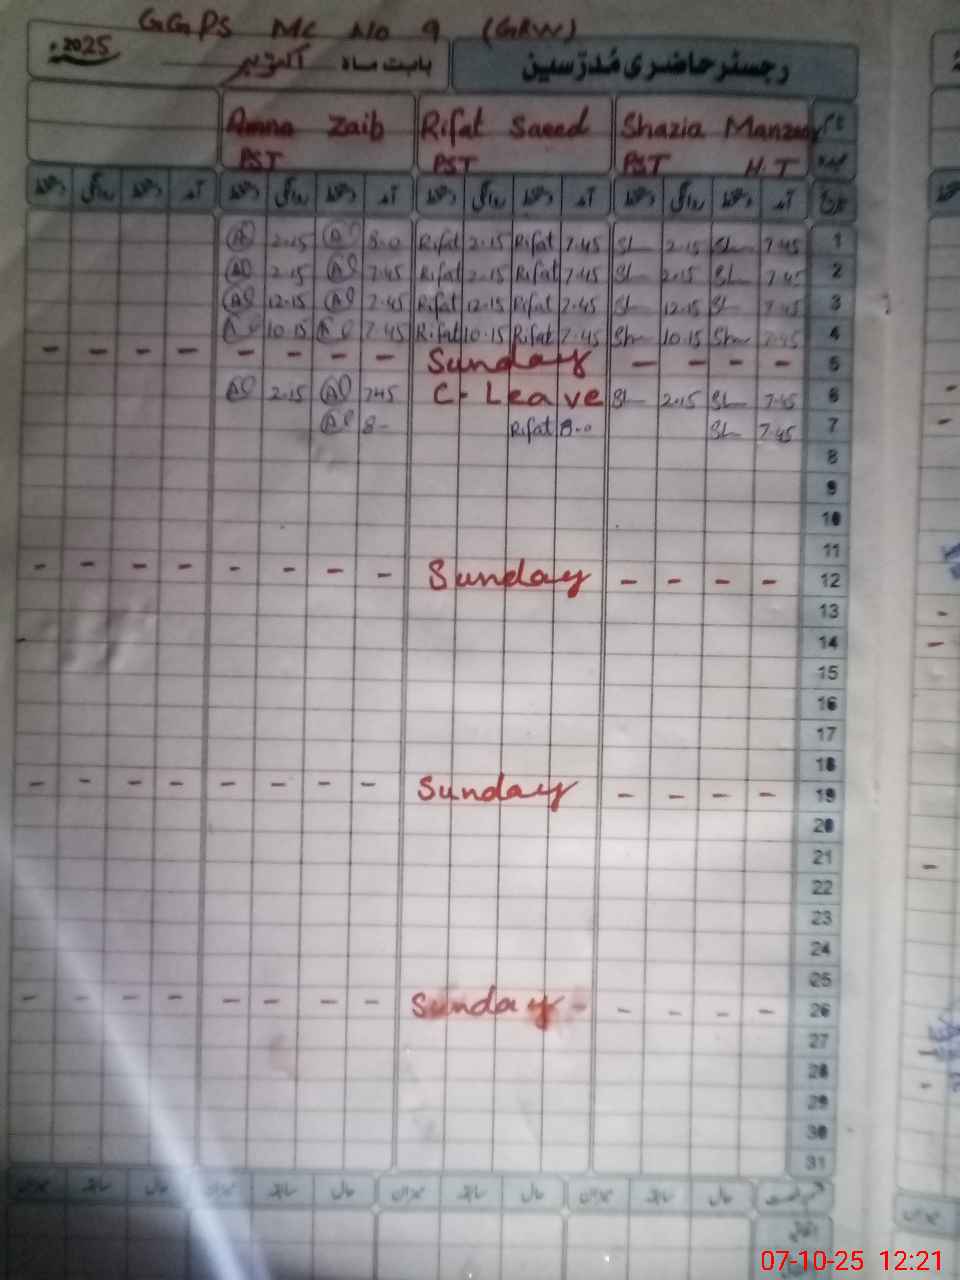 GGPS MC No 9 (GRW)
رجسٹر حاضری مُدرّسین
بابت ماہ اکتوبر 2025ء
Shazia Manzoor Rifat Saeed Amna Zaib
PST H.T PST PST
تاریخ آمد دستخط روانگی دستخط آمد دستخط روانگی دستخط آمد دستخط روانگی دستخط آمد دستخط روانگی دستخط
1 7.45 Sh 2.15 Sh 7.45 Rifat 2.15 Rifat 8.0 2.15
2 7.45 Sh 2.15 Sh 7.45 Rifat 2.15 Rifat 7.45 2.15
3 7.45 Sh 12.15 Sh 7.45 Rifat 12.15 Rifat 7.45 12.15
4 7.45 Sh 10.15 Sh 7.45 Rifat 10.15 Rifat 7.45 10.15
5 - - - - Sunday - - - - - - - -
6 7.45 Sh 2.15 Sh C-Leave 7.45 2.15
7 7.45 Sh 8.0 Rifat 8-
8
9
10
11
12 - - - - Sunday - - - - - - - -
13
14
15
16
17
18
19 - - - - Sunday - - - - - - - -
20
21
22
23
24
25
26 - - - - Sunday - - - - - - - - -
27
28
29
30
31
حال سابقہ میزان حال سابقہ میزان حال سابقہ میزان حال سابقہ میزان
07-10-25 12:21